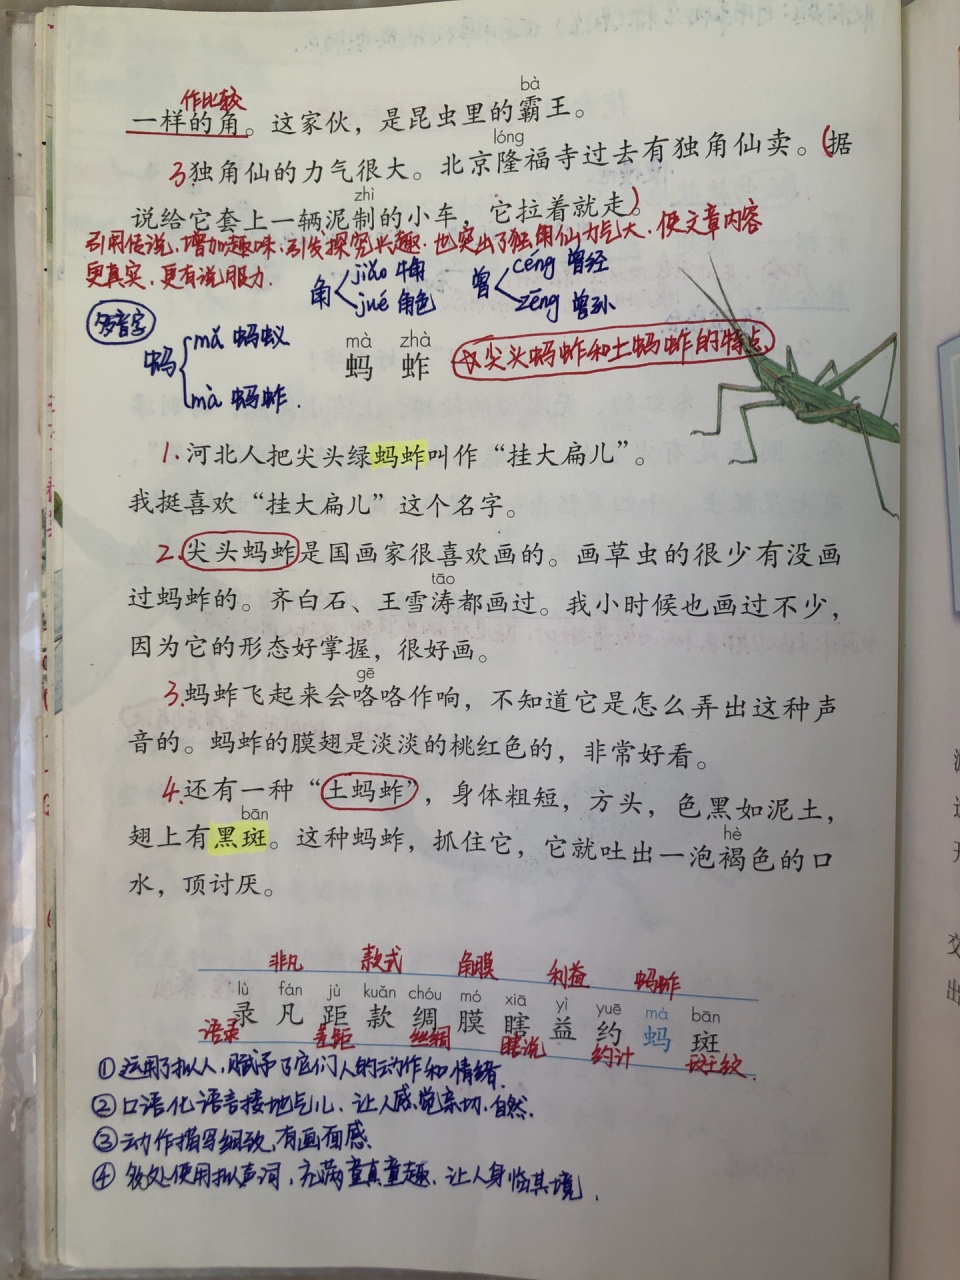 作比较
bà
一样的角。这家伙，是昆虫里的霸王。
lóng
3独角仙的力气很大。北京隆福寺过去有独角仙卖。(据
zhì
说给它套上一辆泥制的小车，它拉着就走。)
引用传说，增加趣味，引发探究兴趣，也突出了独角仙力气大，使文章内容
更真实，更有说服力.
角 jiǎo 牛角 jué 角色
曾 céng 曾经 zēng 曾孙
多音字
蚂 mǎ 蚂蚁 mà 蚂蚱
mà zhà
蚂 蚱
☆尖头蚂蚱和土蚂蚱的特点
1.河北人把尖头绿蚂蚱叫作“挂大扁儿”。
我挺喜欢“挂大扁儿”这个名字。
2.尖头蚂蚱是国画家很喜欢画的。画草虫的很少有没画
tāo
过蚂蚱的。齐白石、王雪涛都画过。我小时候也画过不少，
因为它的形态好掌握，很好画。
gē
3.蚂蚱飞起来会咯咯作响，不知道它是怎么弄出这种声
音的。蚂蚱的膜翅是淡淡的桃红色的，非常好看。
4.还有一种“土蚂蚱”，身体粗短，方头，色黑如泥土，
bān hè
翅上有黑斑。这种蚂蚱，抓住它，它就吐出一泡褐色的口
水，顶讨厌。
非凡 款式 角膜 利益 蚂蚱
lù fán jù kuǎn chóu mó xiā yì yuē mà bān
录 凡 距 款 绸 膜 瞎 益 约 蚂 斑
语录 差距 丝绸 瞎说 约计 斑纹
①运用了拟人，赋予了它们人的动作和情绪.
②口语化语言接地气儿，让人感觉亲切，自然.
③动作描写细致，有画面感.
④多处使用拟声词，充满童真童趣，让人身临其境.